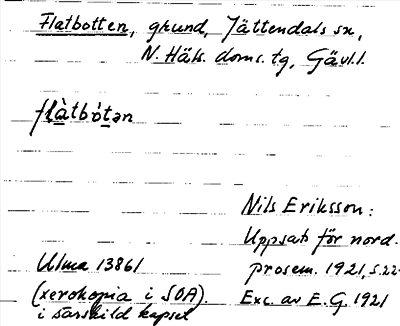 Flatbotten, grund, Jättendals sn,
N. Häls. doms. tg, Gävl.l.
flàtbótən
Nils Eriksson:
Uppsats för nord.
Ulma 13861 prosem. 1921, s. 22
(xerokopia i SOA). Exc. av E.G. 1921
i särskild kapsel